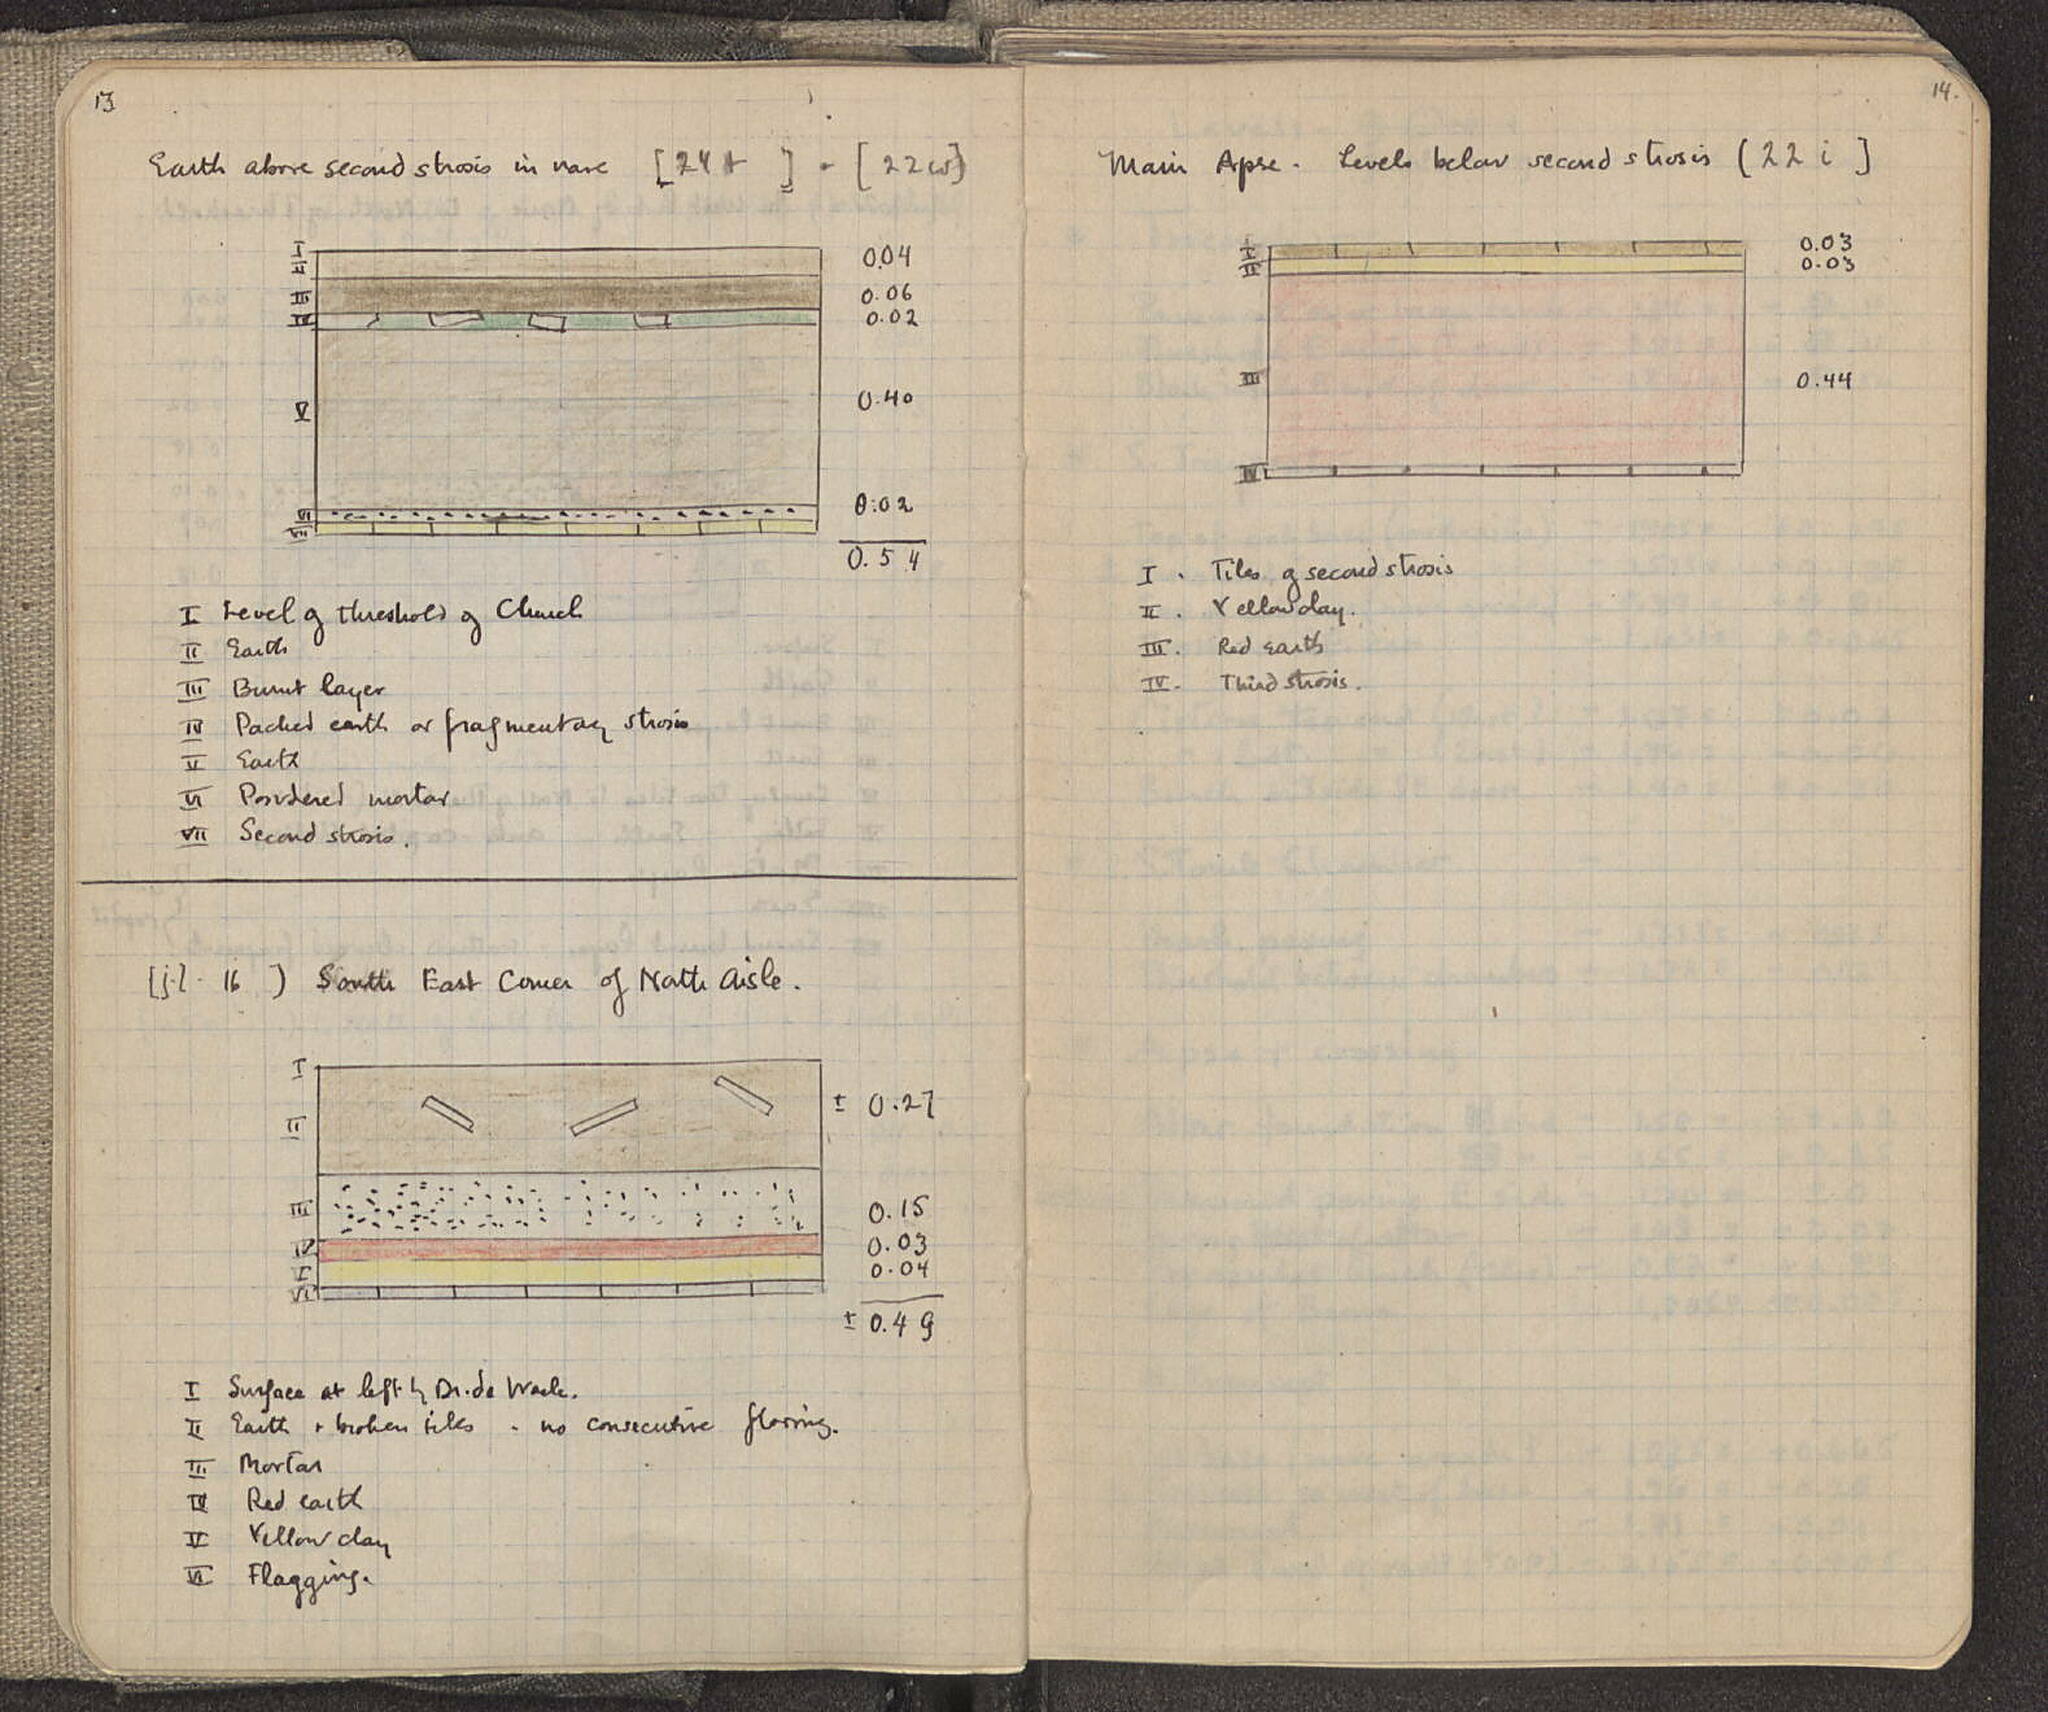 13
Earth above second strosis in nave [24 t ] - [22 w]
I
II 0.04
III 0.06
IV 0.02
V 0.40
VI 0.02
VII
0.54
I Level of threshold of Church
II Earth
III Burnt layer
IV Packed earth or fragmentary strosis
V Earth
VI Powdered mortar
VII Second strosis.
[j.l - 16 ] South East Corner of North Aisle.
I
II ± 0.27
III 0.15
IV 0.03
V 0.04
VI
± 0.49
I Surface as left by Dr. de Waele.
II Earth + broken tiles - no consecutive flooring.
III Mortar
IV Red earth
V Yellow clay
VI Flagging.
14.
Main Apse - Levels below second strosis [22 i ]
I 0.03
II 0.03
III 0.44
IV
I . Tiles of second strosis
II . Yellow clay.
III . Red earth
IV - Third strosis.